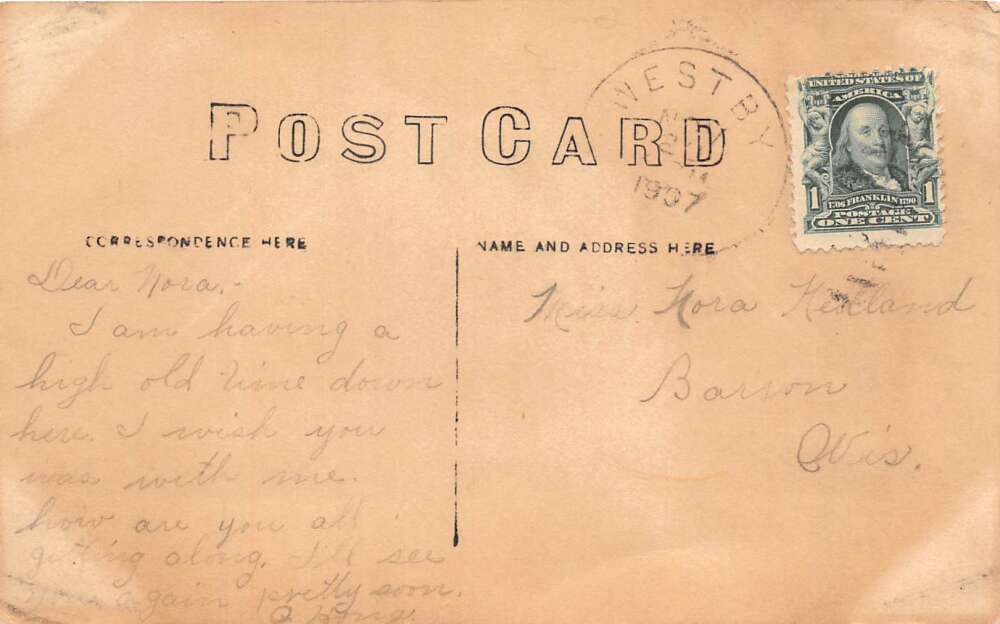 POST CARD
WESTBY
1907
UNITED STATES OF
AMERICA
1 1
1706 FRANKLIN 1790
POSTAGE
ONE CENT
CORRESPONDENCE HERE
NAME AND ADDRESS HERE
Dear Nora,-
I am having a
high old time down
here. I wish you
was with me.
how are you all
getting along. I'll see
you again pretty soon.
Miss Nora
Barron
Wis.